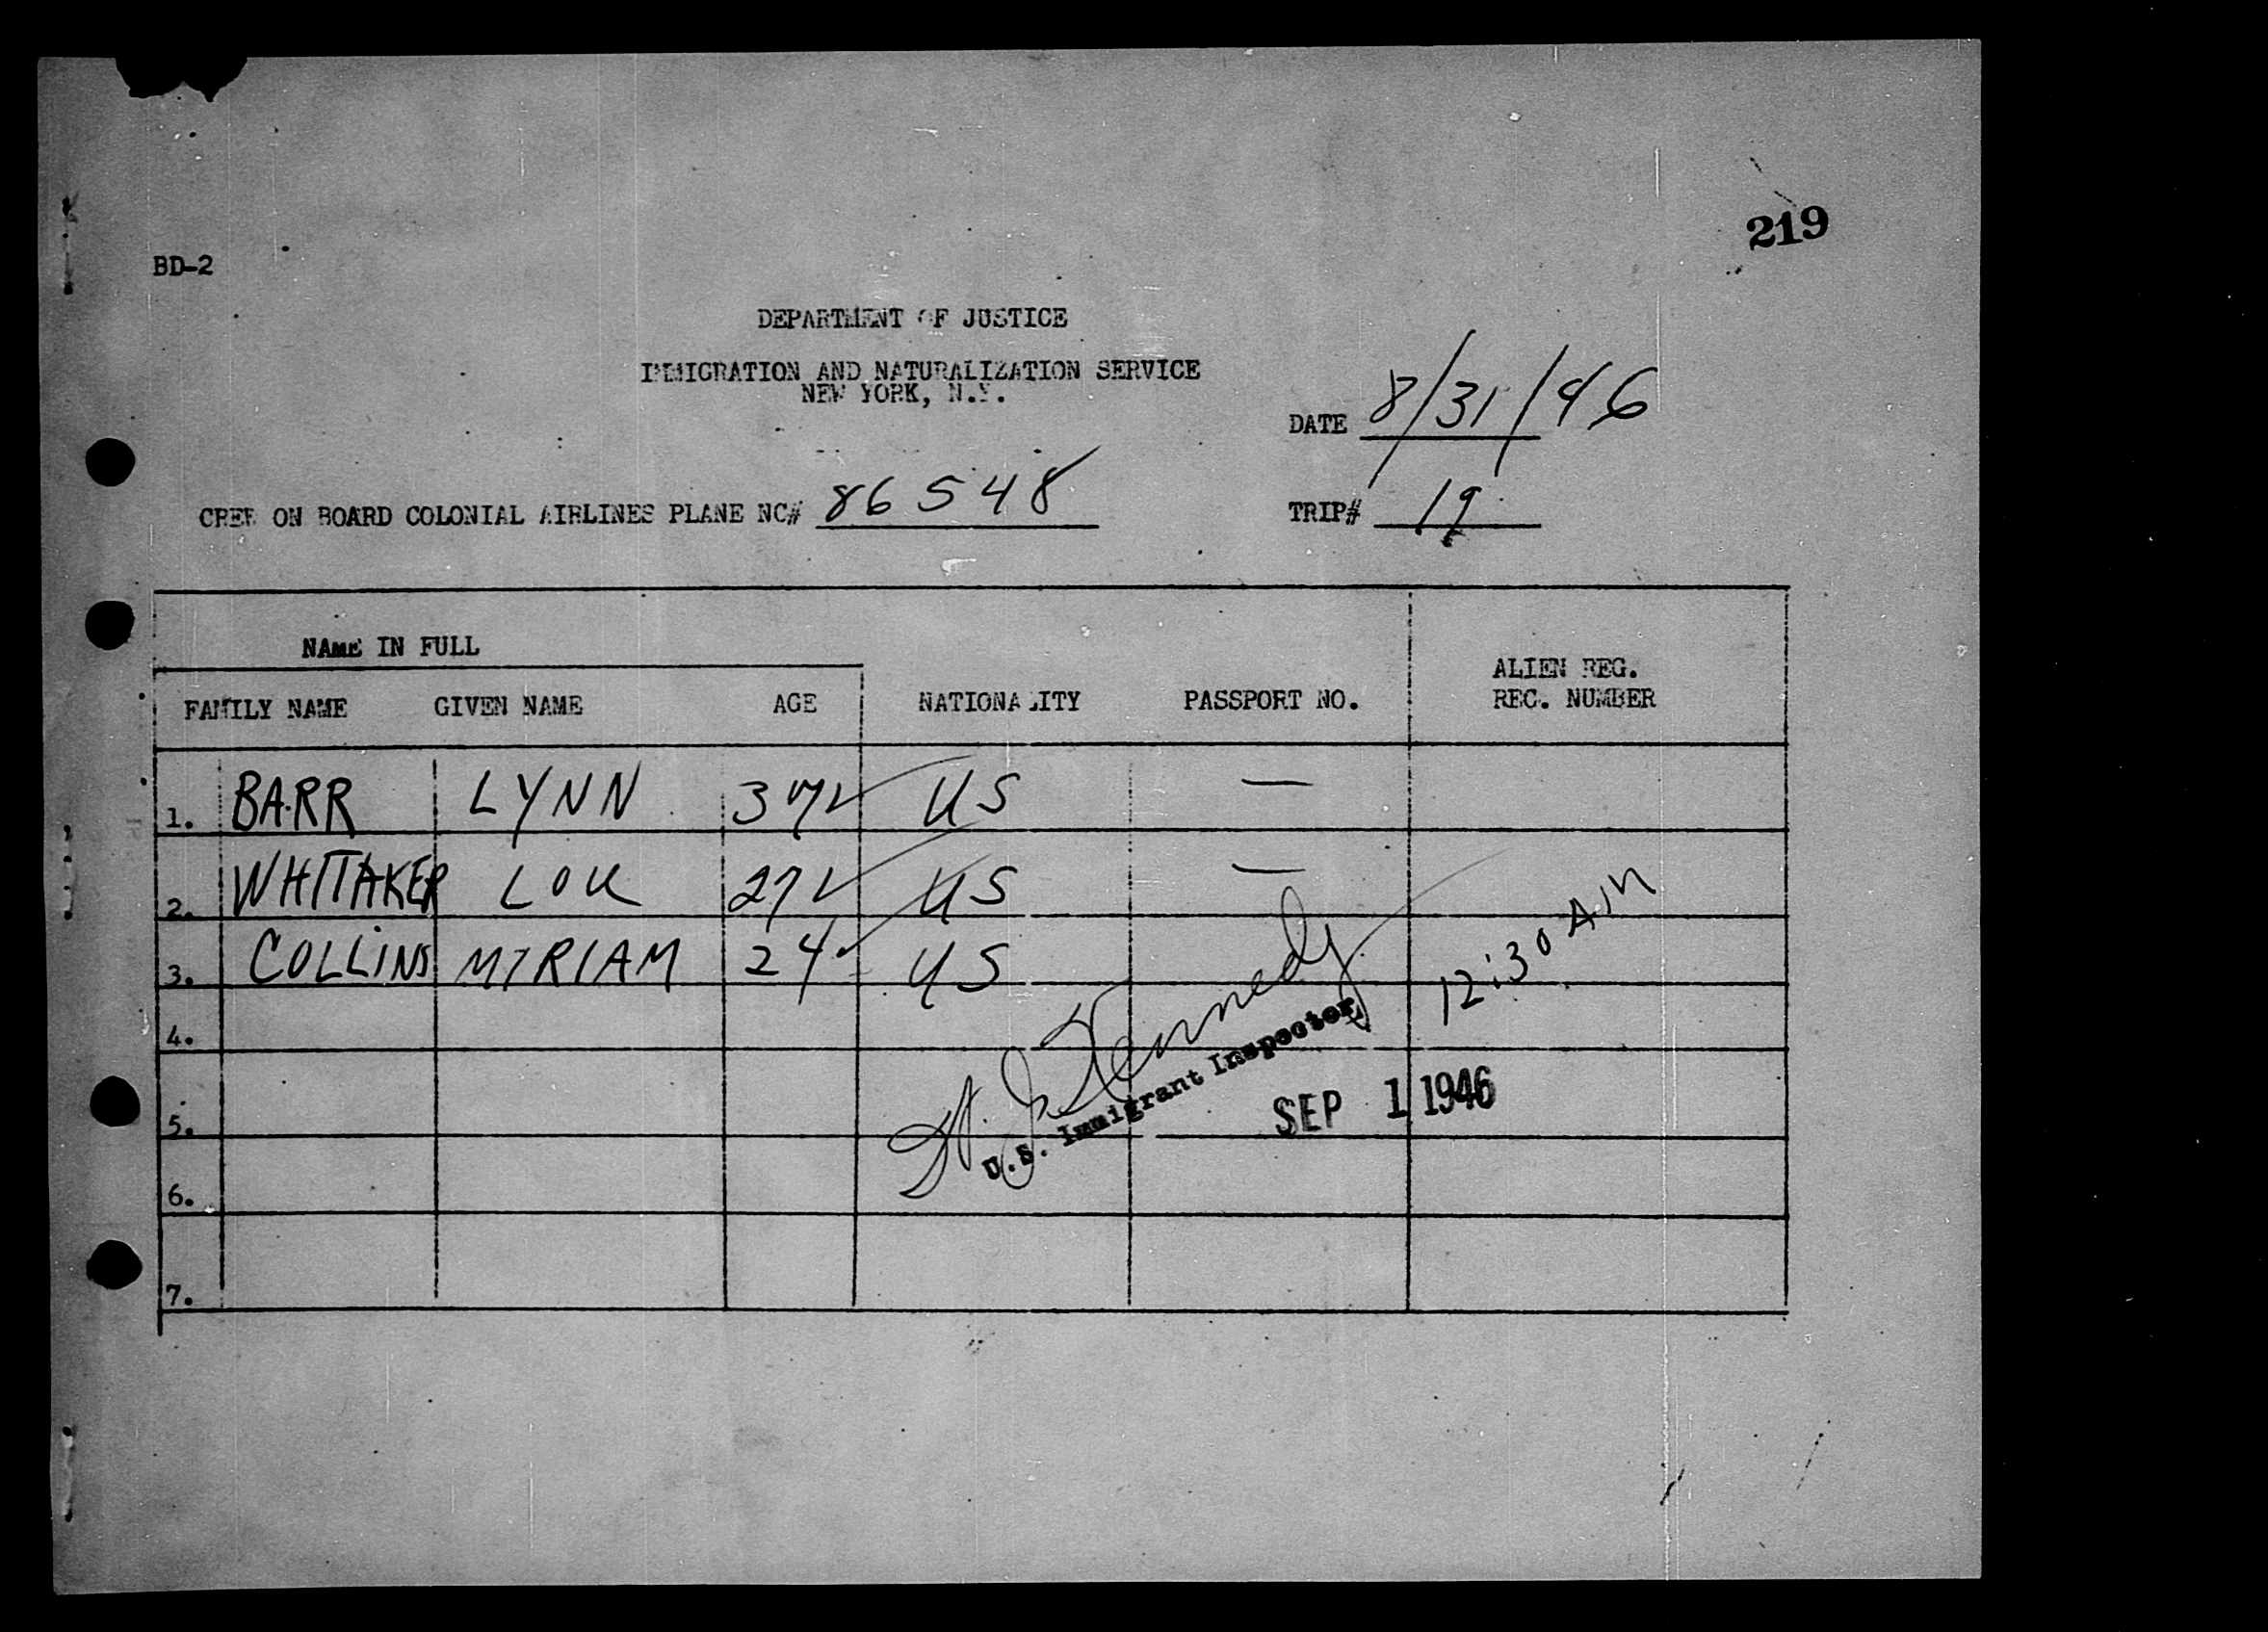 219
BD-2
DEPARTMENT OF JUSTICE
IMMIGRATION AND NATURALIZATION SERVICE
NEW YORK, N.Y.
DATE 8/31/46
CREW ON BOARD COLONIAL AIRLINES PLANE NC# 86548
TRIP# 19
NAME IN FULL
FAMILY NAME GIVEN NAME AGE NATIONALITY PASSPORT NO. ALIEN REG. REC. NUMBER
1. BARR LYNN 37 US —
2. WHITTAKER LOU 27 US —
3. COLLINS MIRIAM 24 US
12:30 AM
4.
Kennedy
U.S. Immigrant Inspector
SEP 1 1946
5.
6.
7.